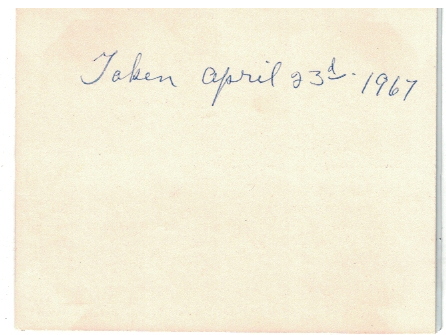 Taken April 23d. 1967